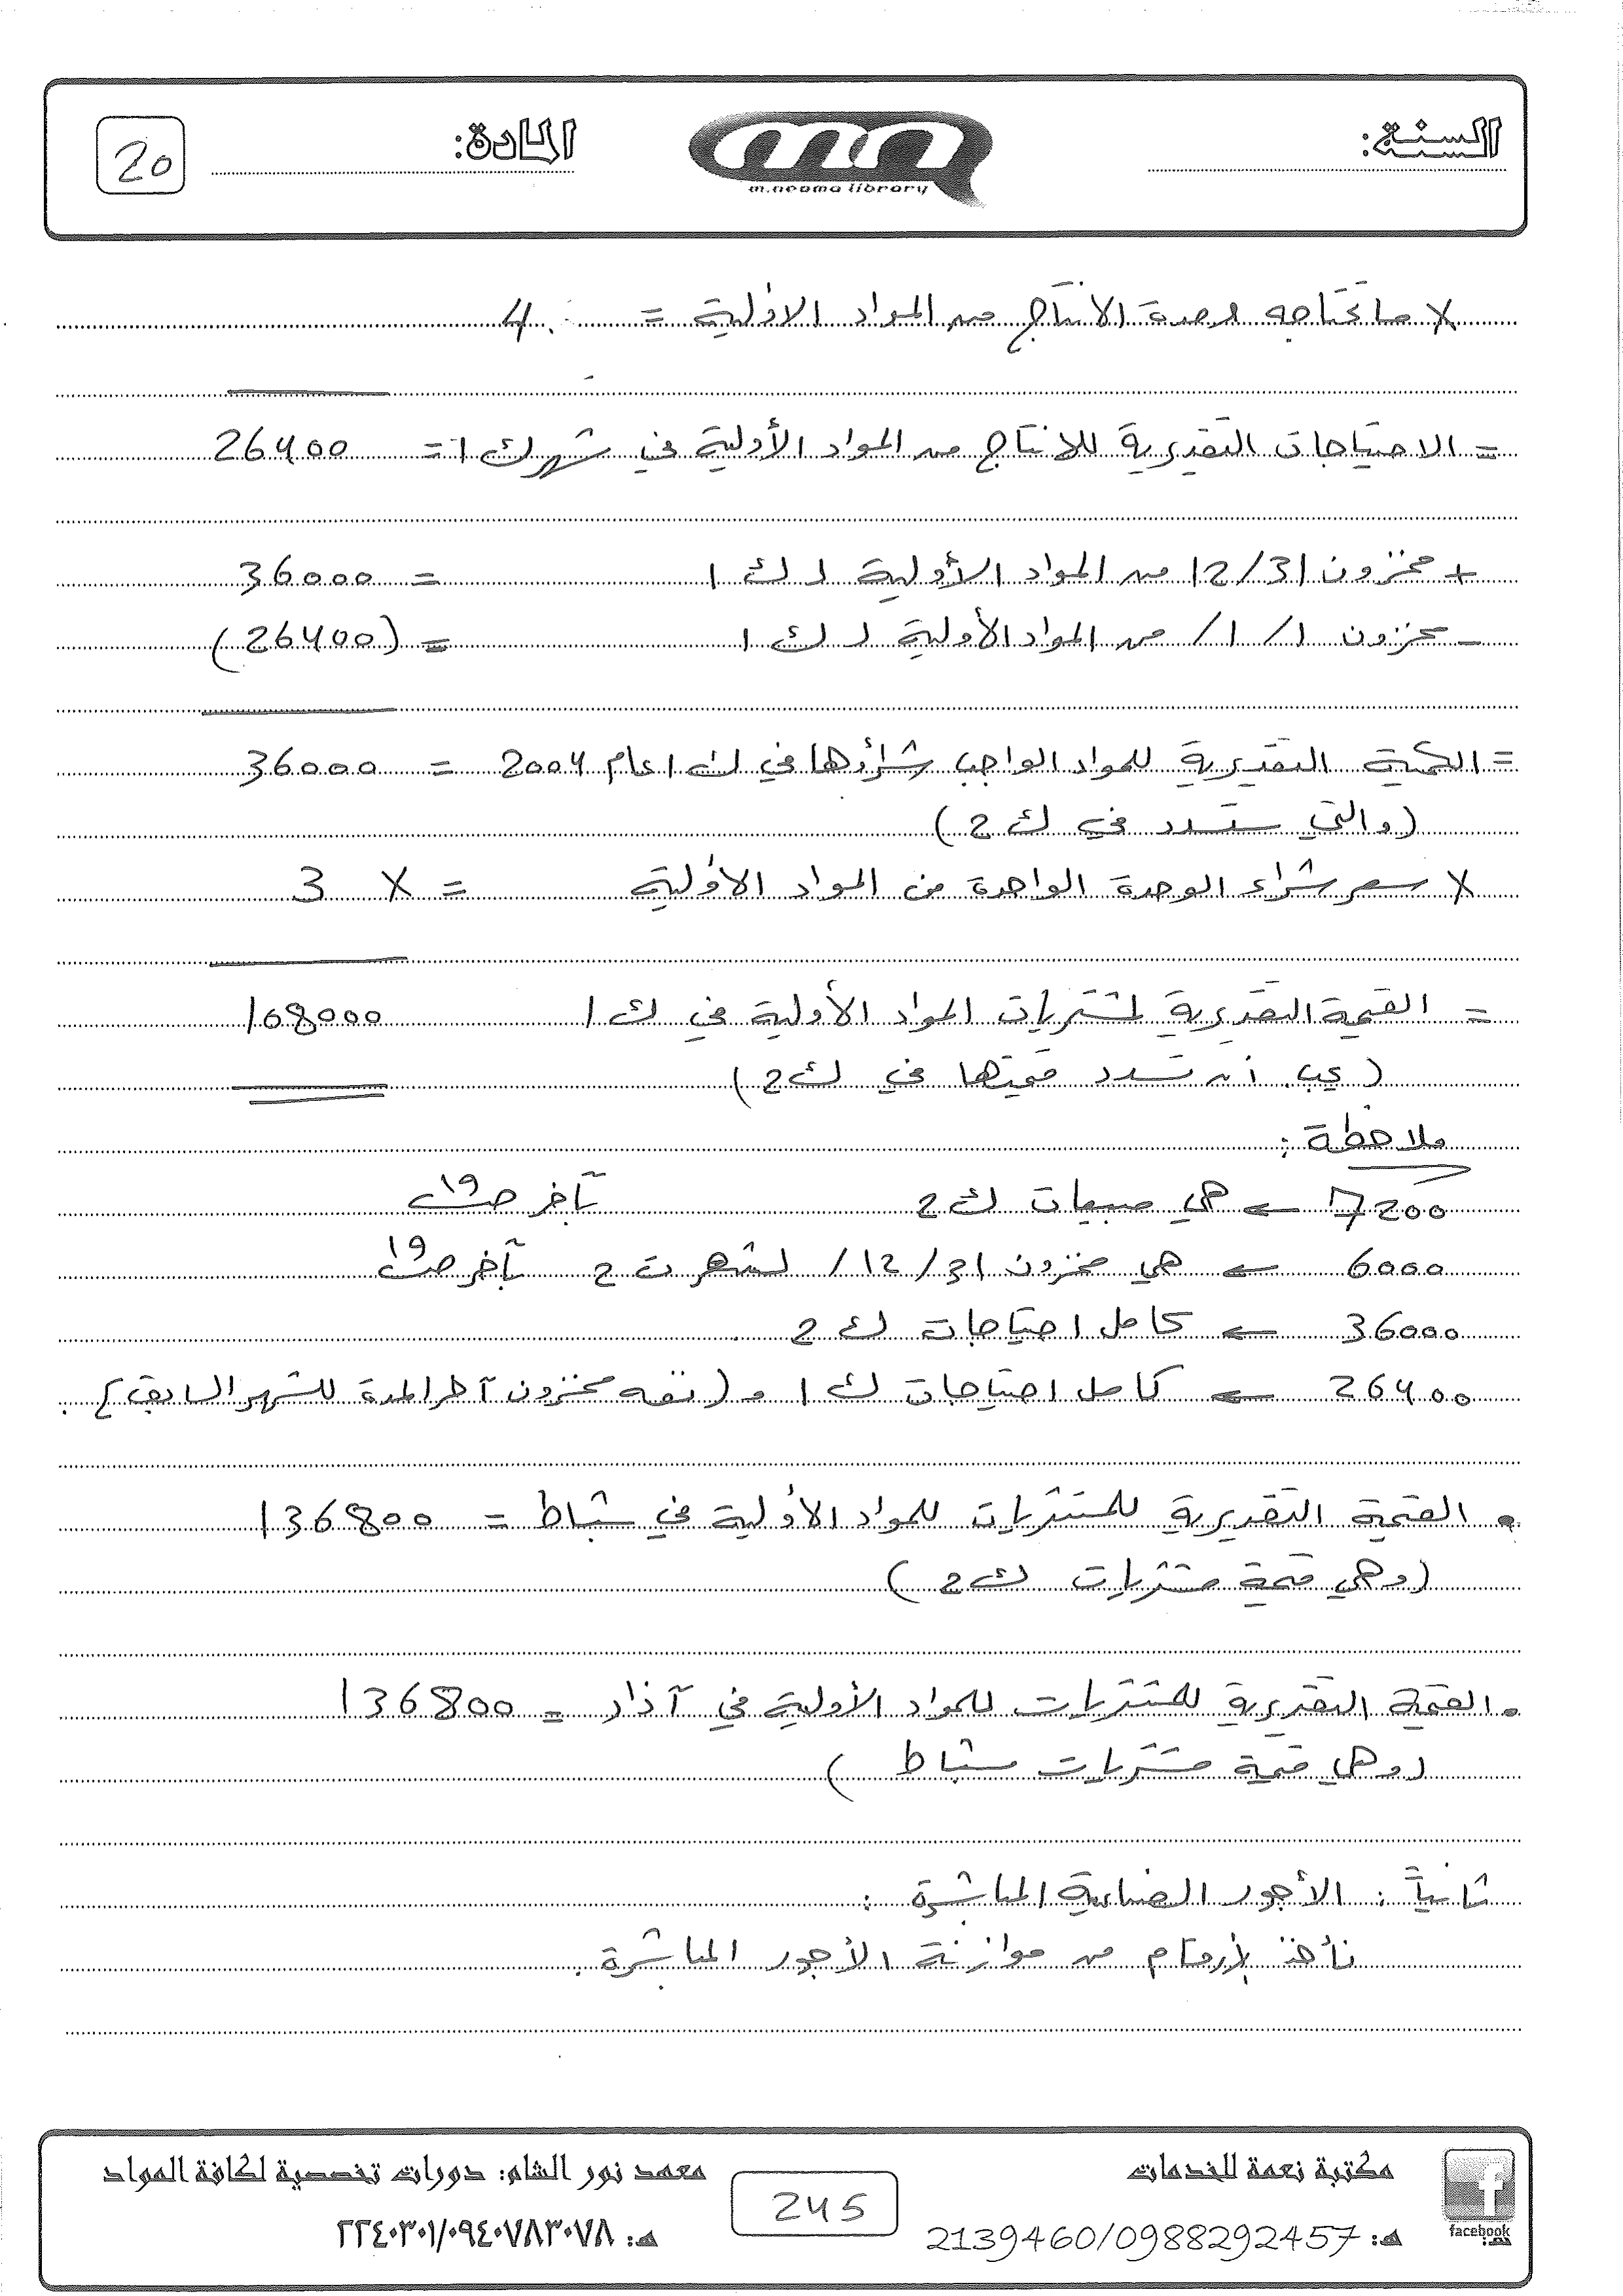 السنة:
المادة:
20
m.neama library
× ما تحتاجه وحدة الانتاج من المواد الاولية = 4
= الاحتياجات التقديرية للانتاج من المواد الأولية في شهر ك 1 = 26400
+ مخزون 12/31 من المواد الأولية لـ ك 1 = 36000
- مخزون 1/1/ من المواد الأولية لـ ك 1 = (26400)
= الكمية التقديرية للمواد الواجب شراؤها في ك 1 عام 2004 = 36000
(والتي ستسدد في ك 2)
× سعر شراء الوحدة الواحدة من المواد الاولية = × 3
= القيمة التقديرية لمشتريات المواد الأولية في ك 1 108000
(يجب أن تسدد قيمتها في ك 2)
ملاحظة:
7200 ← هي مبيعات ك 2 بآخر ص 19
6000 ← هي مخزون 12/31/ لشهر ت 2 بآخر ص 19
36000 ← كامل احتياجات ك 2
26400 ← كامل احتياجات ك 1 و (نفسه مخزون آخر المدة للشهر السابق).
• القيمة التقديرية للمشتريات للمواد الاولية في شباط = 136800
(وهي قيمة مشتريات ك 2)
• القيمة التقديرية للمشتريات للمواد الأولية في آذار = 136800
(وهي قيمة مشتريات شباط)
ثانياً: الأجور الصناعية المباشرة:
نأخذ الأرقام من موازنة الأجور المباشرة.
facebook
مكتبة نعمة للخدمات
هـ: 2139460/0988292457
245
معهد نور الشام: دورات تخصصية لكافة المواد
هـ: ٢٢٤٠٣٠١/٠٩٤٠٧٨٣٠٧٨